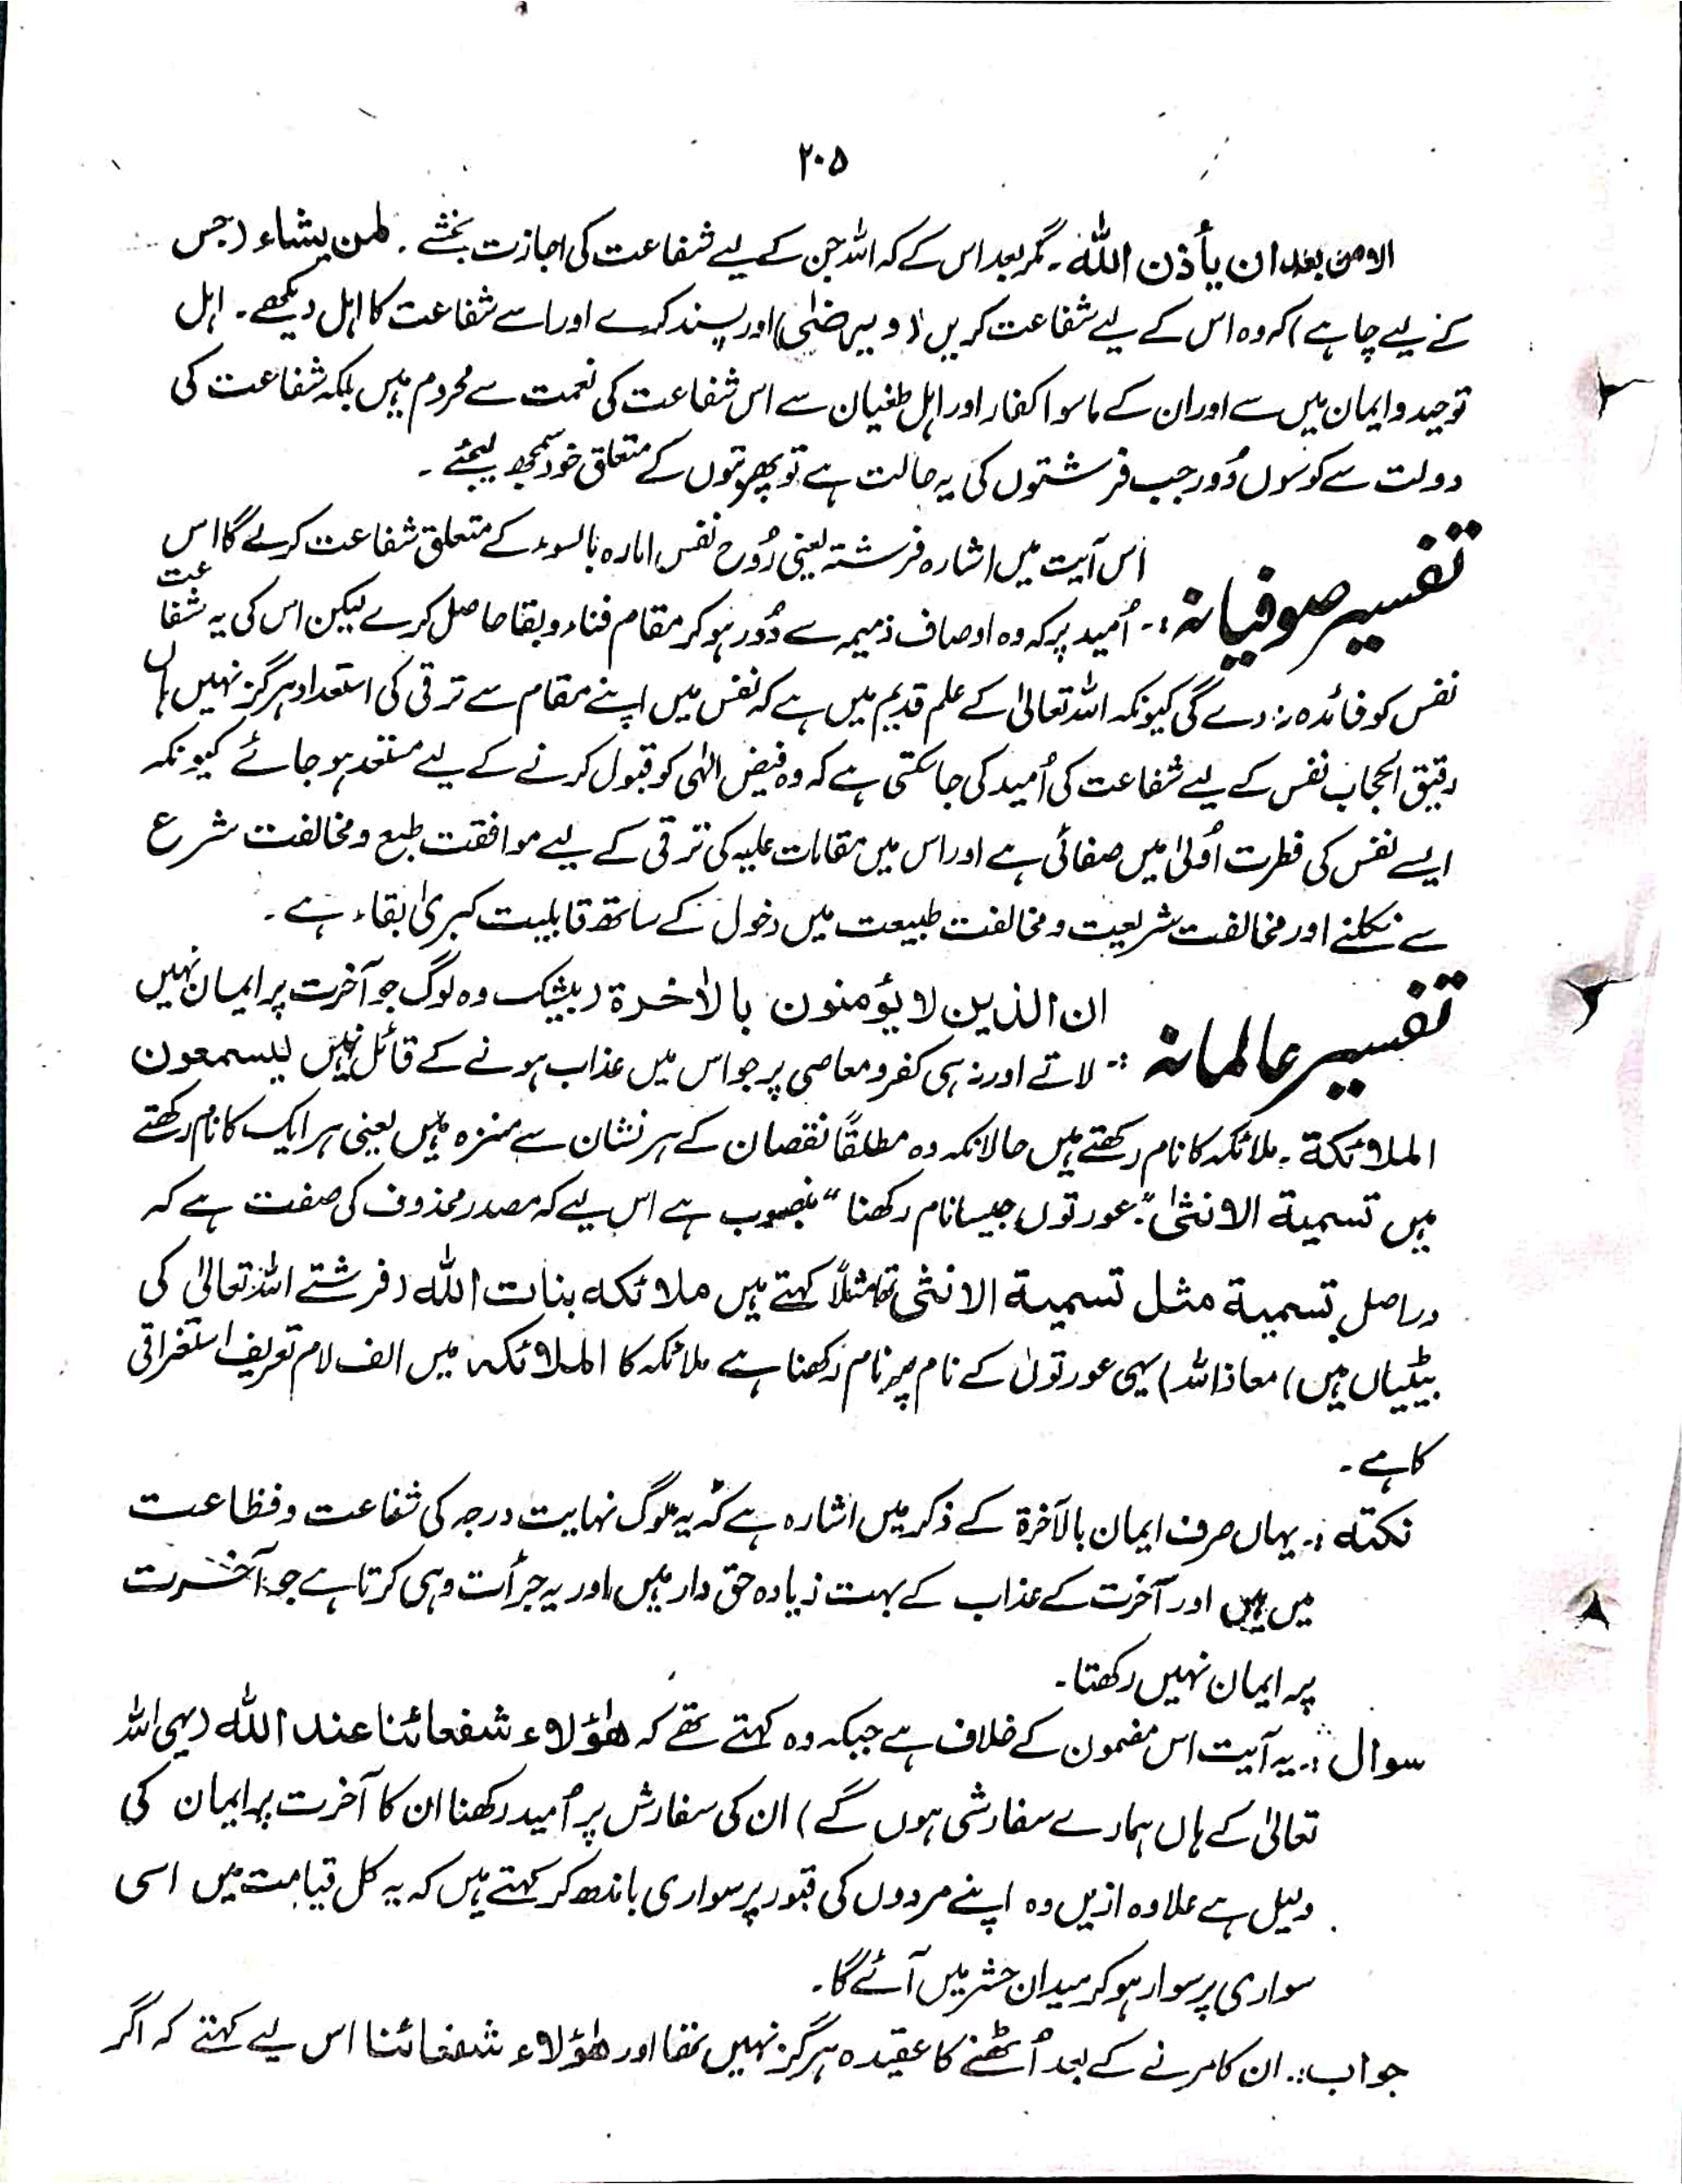 ۲۰۵
الا من بعد ان یأذن اللہ ۔ مگر بعد اس کے کہ اللہ جن کے لیے شفاعت کی اجازت بخشے ۔ لمن یشاء (جس
کے لیے چاہے) کہ وہ اس کے لیے شفاعت کریں (و یرضٰی) اور پسند کرے اور اسے شفاعت کا اہل دیکھے ۔ اہل
توحید و ایمان میں سے اور ان کے ماسوا کفار اور اہل طغیان سے اس شفاعت کی نعمت سے محروم ہیں بلکہ شفاعت کی
دولت سے کوسوں دُور جب فرشتوں کی یہ حالت ہے تو پھر بتوں کے متعلق خود سمجھ لیجئے ۔
تفسیر صوفیانہ :۔ اس آیت میں اشارہ فرشتہ یعنی رُوح نفس امارہ بالسوء کے متعلق شفاعت کرے گا اس
اُمید پر کہ وہ اوصاف ذمیمہ سے دُور ہو کر مقام فناء و بقا حاصل کرے لیکن اس کی یہ شفاعت
نفس کو فائدہ نہ دے گی کیونکہ اللہ تعالیٰ کے علم قدیم میں ہے کہ نفس میں اپنے مقام سے ترقی کی استعداد ہرگز نہیں ہاں
رقیق الحجاب نفس کے لیے شفاعت کی اُمید کی جا سکتی ہے کہ وہ فیض الٰہی کو قبول کرنے کے لیے مستعد ہو جائے کیونکہ
ایسے نفس کی فطرت اُولیٰ میں صفائی ہے اور اس میں مقامات علیہ کی ترقی کے لیے موافقت طبع و مخالفت شرع
سے نکلنے اور مخالفت شریعت و مخالفت طبیعت میں دخول کے ساتھ قابلیت کبریٰ بقاء ہے ۔
تفسیر عالمانہ :۔ ان الذین لا یؤمنون بالاٰخرة (بیشک وہ لوگ جو آخرت پر ایمان نہیں
لاتے اور نہ ہی کفر و معاصی پر جو اس میں عذاب ہونے کے قائل نہیں لیسمعون
الملائکة ۔ ملائکہ کا نام رکھتے ہیں حالانکہ وہ مطلقاً نقصان کے ہر نشان سے منزہ ہیں یعنی ہر ایک کا نام رکھتے
ہیں تسمیة الانثیٰ "عورتوں جیسا نام رکھنا" منصوب ہے اس لیے کہ مصدر محذوف کی صفت ہے کہ
دراصل تسمیة مثل تسمیة الانثی تھا مثلاً کہتے ہیں ملائکہ بنات اللہ (فرشتے اللہ تعالیٰ کی
بیٹیاں ہیں) معاذ اللہ) یہی عورتوں کے نام پر نام رکھنا ہے ملائکہ کا الملائکہ میں الف لام تعریف استغراقی
کا ہے ۔
نکتہ :۔ یہاں صرف ایمان بالآخرة کے ذکر میں اشارہ ہے کہ یہ لوگ نہایت درجہ کی شفاعت و فظاعت
میں ہیں اور آخرت کے عذاب کے بہت زیادہ حق دار ہیں اور یہ جرأت وہی کرتا ہے جو آخرت
پر ایمان نہیں رکھتا ۔
سوال :۔ یہ آیت اس مضمون کے خلاف ہے جبکہ وہ کہتے تھے کہ ھٰؤلاء شفعائنا عند اللہ (یہی اللہ
تعالیٰ کے ہاں ہمارے سفارشی ہوں گے) ان کی سفارش پر اُمید رکھنا ان کا آخرت پر ایمان کی
دلیل ہے علاوہ ازیں وہ اپنے مردوں کی قبور پر سواری باندھ کر کہتے ہیں کہ یہ کل قیامت میں اسی
سواری پر سوار ہو کر میدان حشر میں آئے گا ۔
جواب :۔ ان کا مرنے کے بعد اُٹھنے کا عقیدہ ہرگز نہیں تھا اور ھٰؤلاء شفعائنا اس لیے کہتے کہ اگر